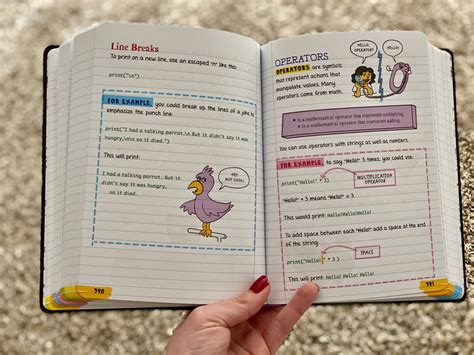 Line Breaks
To print on a new line, use an escaped "n" like this:
print("\n")
FOR EXAMPLE, you could break up the lines of a joke to
emphasize the punch line:
print("I had a talking parrot.\n But it didn't say it
was hungry,\n\n so it died.")
This will print:
I had a talking parrot. But it
didn't say it was hungry,
so it died.
HEY,
NOT COOL!
390
OPERATORS
OPERATORS are symbols
that represent actions that
manipulate values. Many
operators come from math.
HELLO,
OPERATOR?
HELLO!
is a mathematical operator that represents multiplying
is a mathematical operator that represents adding
You can use operators with strings as well as numbers.
FOR EXAMPLE, to say "Hello!" 3 times, you could use:
print("Hello!" * 3)
MULTIPLICATION
OPERATOR
"Hello!" * 3 means "Hello!" x 3
This would print: Hello!Hello!Hello!
To add space between each "Hello!" add a space at the end
of the string:
SPACE
print("Hello! " * 3 )
This will print: Hello! Hello! Hello!
391